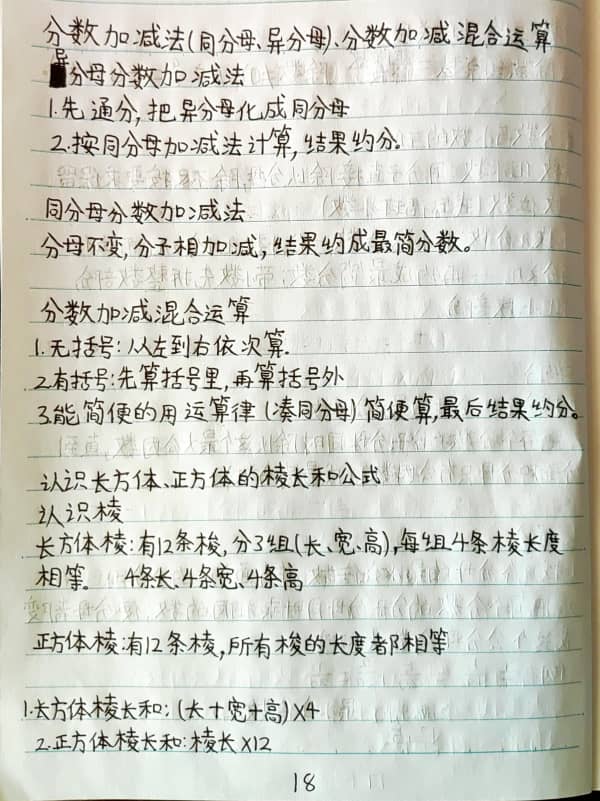 分数加减法(同分母、异分母)、分数加减混合运算
异分母分数加减法
1.先通分,把异分母化成同分母
2.按同分母加减法计算,结果约分。
同分母分数加减法
分母不变,分子相加减,结果约成最简分数。
分数加减混合运算
1.无括号:从左到右依次算.
2.有括号:先算括号里,再算括号外
3.能简便的用运算律(凑同分母)简便算,最后结果约分。
认识长方体、正方体的棱长和公式
认识棱
长方体棱:有12条棱,分3组(长、宽、高),每组4条棱长度
相等。 4条长、4条宽、4条高
正方体棱:有12条棱,所有棱的长度都相等
1.长方体棱长和:(长+宽+高)×4
2.正方体棱长和:棱长×12
18